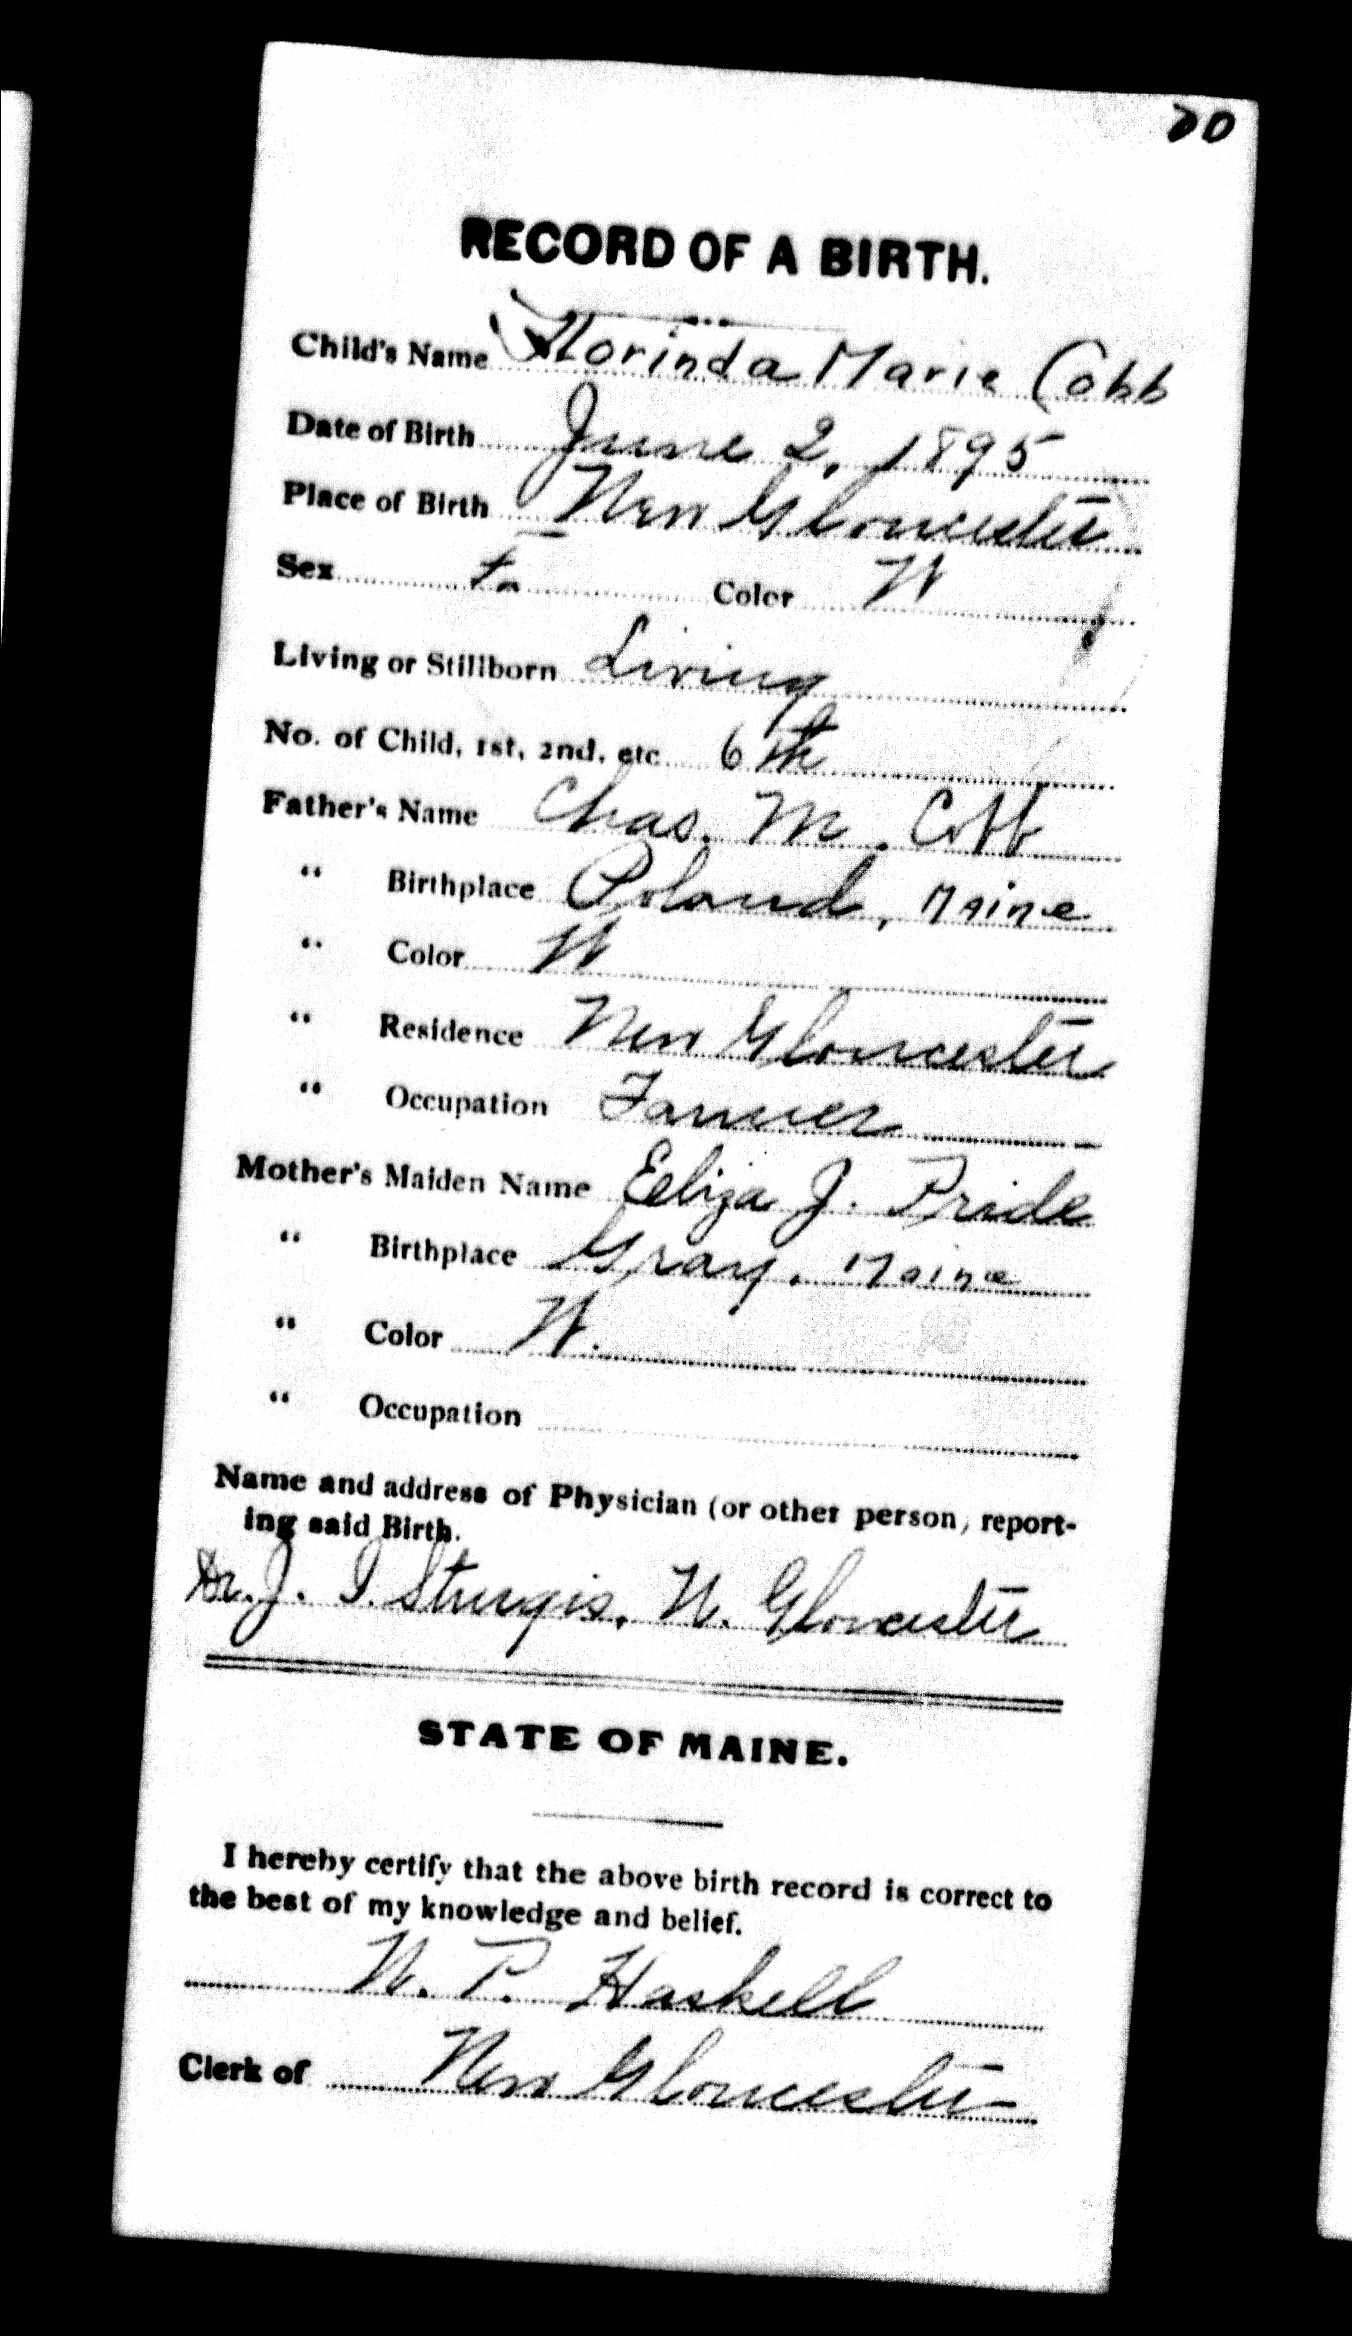 20
RECORD OF A BIRTH.
Child's Name Florinda Marie Cobb
Date of Birth June 2, 1895
Place of Birth New Gloucester
Sex F. Color W
Living or Stillborn Living
No. of Child, 1st, 2nd, etc. 6th
Father's Name Chas. M. Cobb
" Birthplace Poland, Maine
" Color W
" Residence New Gloucester
" Occupation Farmer
Mother's Maiden Name Eliza J. Pride
" Birthplace Gray, Maine
" Color W.
" Occupation
Name and address of Physician (or other person, report-
ing said Birth.
Dr. J. I. Sturgis, N. Gloucester
STATE OF MAINE.
I hereby certify that the above birth record is correct to
the best of my knowledge and belief.
N. P. Haskell
Clerk of New Gloucester